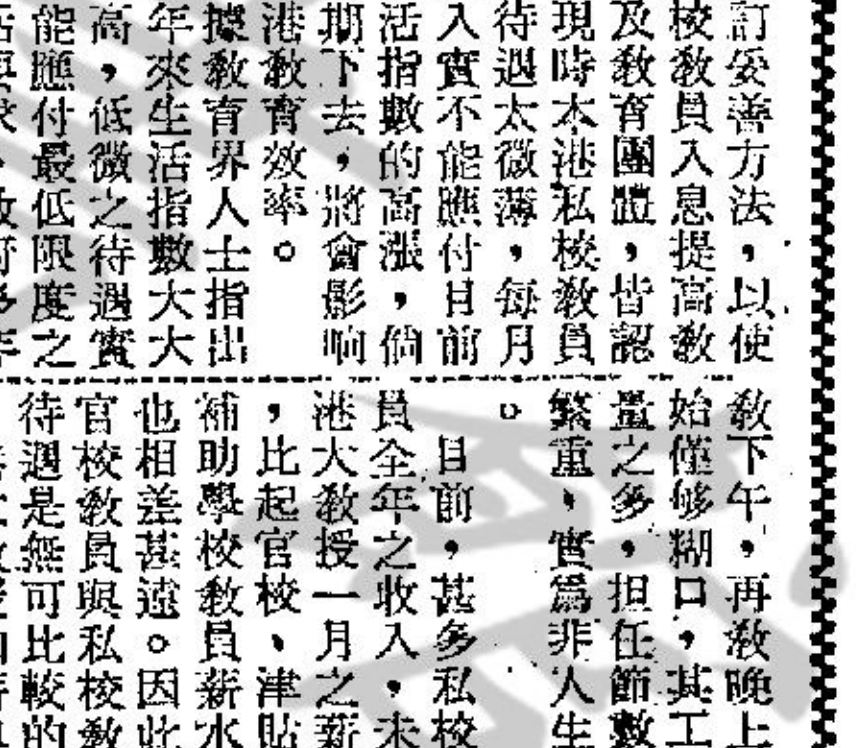 訂妥善方法，以使
校敎員入息提高敎
及敎育團體，皆認
現時本港私校敎員
待遇太微薄，每月
入實不能應付目前
活指數的高漲，倘
期下去，將會影响
港敎育效率。
據敎育界人士指出
年來生活指數大大
高，低微之待遇實
能應付最低限度之
敎下午，再敎晚上
始僅够糊口，其工
量之多，担任節數
繁重，實爲非人生
。
目前，甚多私校
員全年之收入，未
港大敎授一月之薪
，比起官校、津貼
補助學校敎員薪水
也相差甚遠。因此
官校敎員與私校敎
待遇是無可比較的